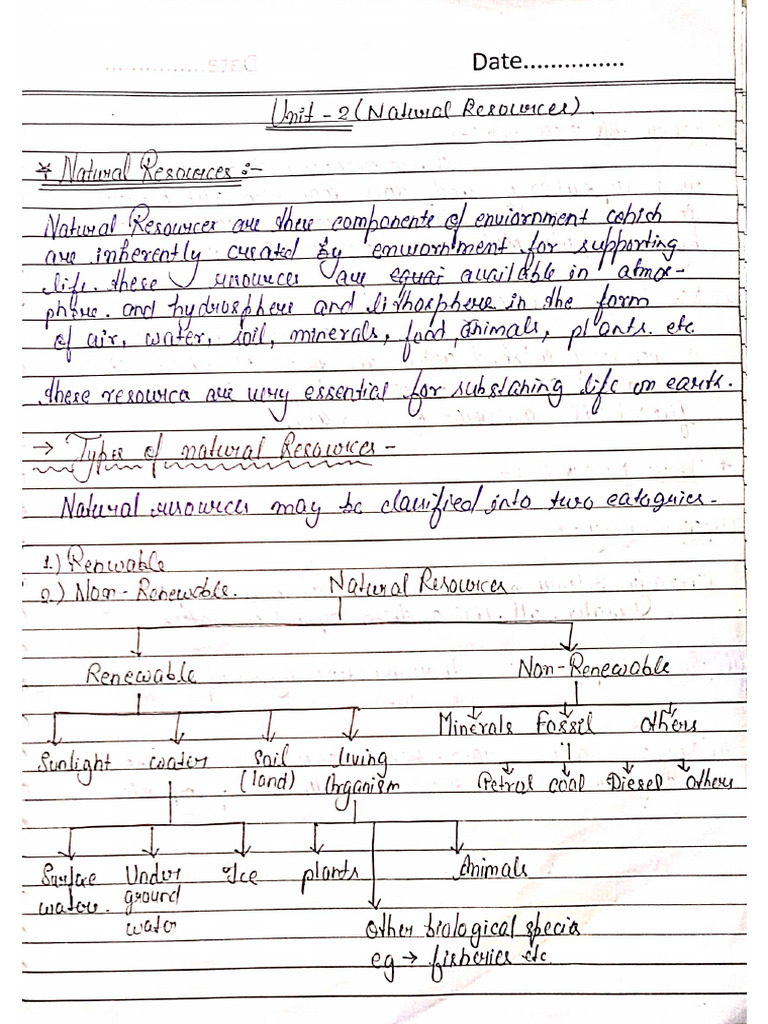 Date...............
Unit - 2 (Natural Resources).
* Natural Resources :-
Natural Resources are these components of enviornment which
are inherently created by enviornment for supporting
life. these resources are equai available in atmos-
phere. and hydrosphere and lithosphere in the form
of air, water, soil, minerals, food, animals, plants. etc
these resources are very essential for substaning life on earth.
→ Types of natural Resources -
Natural resources may be classified into two catogries -
1.) Renwable
2.) Non - Renewable.
Natural Resources
Renewable Non-Renewable
Minerals Fossil others
Sunlight water Soil living
(land) Organism
Petrol coal Diesel others
Surface Under Ice plants Animals
water. ground
water
Other biological specis
eg → fisheries etc